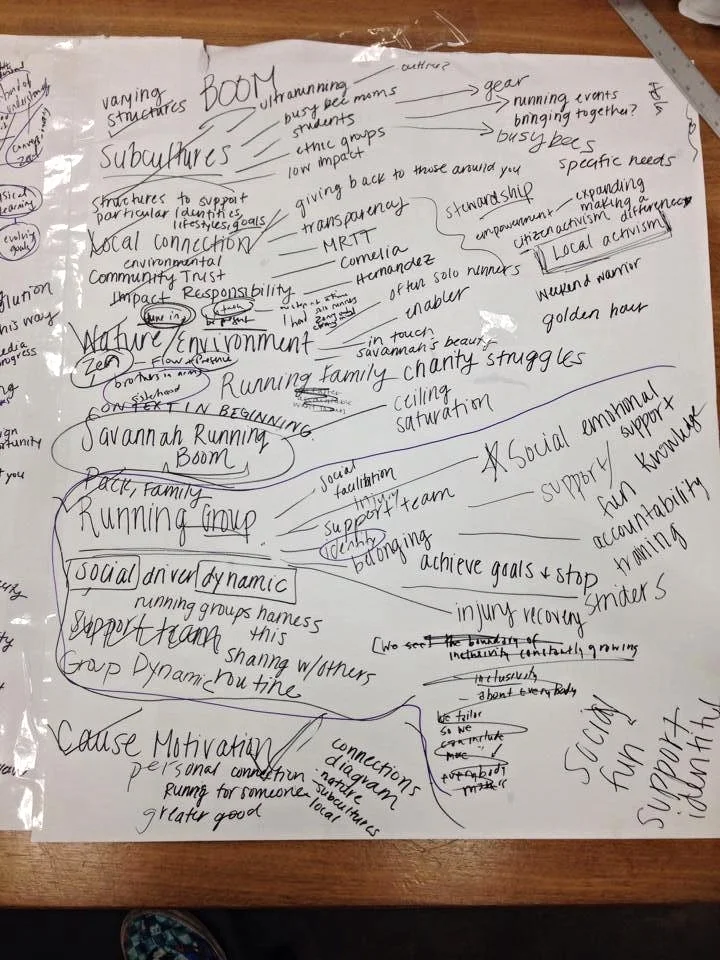 varying
structures BOOM
ultrarunning
outliers?
busy bee moms
gear
students
running events
bringing together?
Subcultures
ethic groups
busy bees
low impact
specific needs
structures to support
particular identities,
lifestyles, goals
giving back to those around you
stewardship
expanding
making a
difference
empowerment
citizen activism
Local activism
Local connection
transparency
environmental
MRTT
Community Trust
Cornelia
Hernandez
Impact Responsibility
weekend warrior
golden hour
tune in
be present
often solo runners
enabler
Nature/Environment
in touch
savannah's beauty
Zen
Flow + Presence
brothers in army
sisterhood
Running Family
charity struggles
CONTEXT IN BEGINNING
ceiling
saturation
Savannah Running
Boom
Pack, Family
Running Group
social
facilitation
injury
support team
identity
belonging
Social emotional
support
support/
fun knowledge
accountability
training
achieve goals + stop
injury recovery
striders
social driver dynamic
running groups harness
this
support team
sharing w/others
Group Dynamic routine
[We see the boundary of
inclusivity constantly growing
inclusivity
about everybody
We tailor
so we
can include
more
everybody
Cause Motivation
personal connection
Runing for someone
greater good
connections
diagram
- nature
subcultures
local
Social
fun
support
identity
evolving
goals
learning
his way
edia
rogress
ign
ortunity
t you